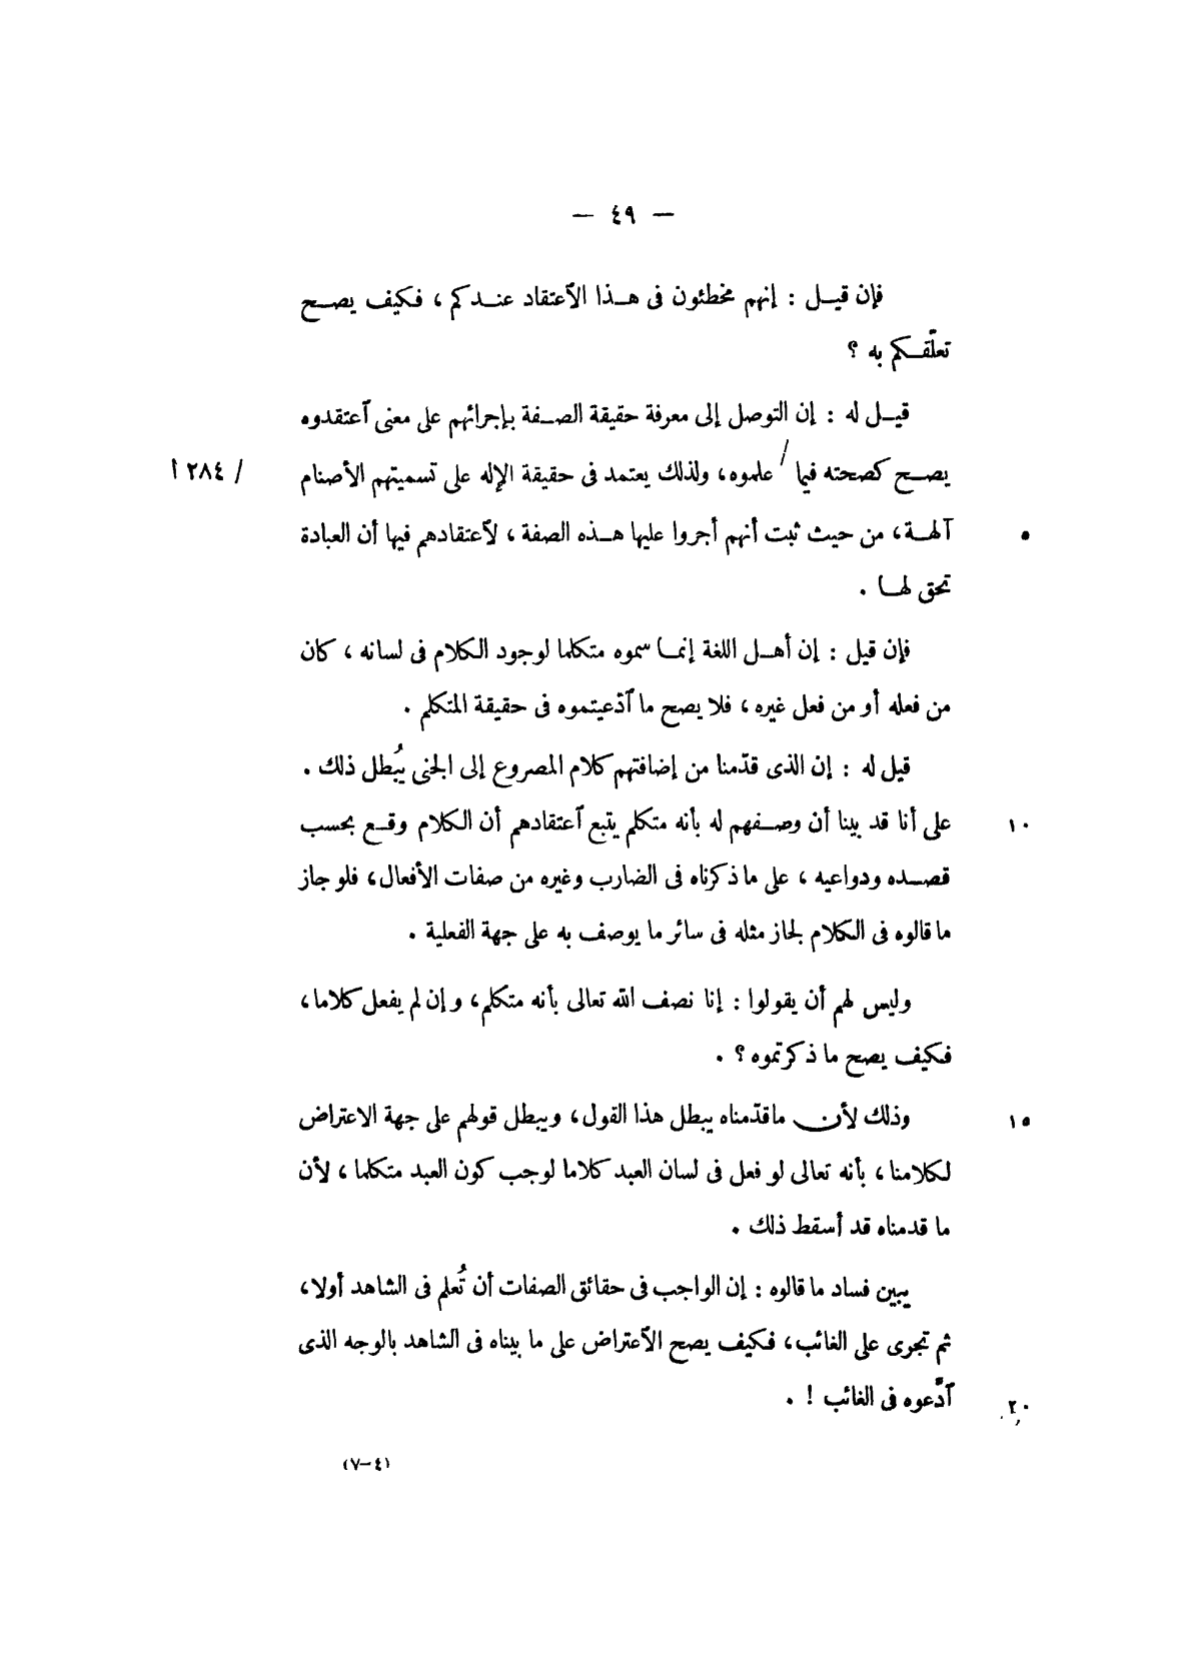 — ٤٩ —
فإن قيل : إنهم مخطئون فى هذا الاعتقاد عندكم ، فكيف يصح
تعلّقكم به ؟
قيل له : إن التوصل إلى معرفة حقيقة الصفة بإجرائهم على معنى اعتقدوه
يصح كصحته فيما / علموه، ولذلك يعتمد فى حقيقة الإله على تسميتهم الأصنام / ٢٨٤ أ
آلهة، من حيث ثبت أنهم أجروا عليها هذه الصفة ، لاعتقادهم فيها أن العبادة ٥
تحق لها .
فإن قيل : إن أهل اللغة إنما سموه متكلما لوجود الكلام فى لسانه ، كان
من فعله أو من فعل غيره ، فلا يصح ما ادّعيتموه فى حقيقة المتكلم .
قيل له : إن الذى قدّمنا من إضافتهم كلام المصروع إلى الجنى يُبطل ذلك .
على أنا قد بينا أن وصفهم له بأنه متكلم يتبع اعتقادهم أن الكلام وقع بحسب ١٠
قصده ودواعيه ، على ما ذكرناه فى الضارب وغيره من صفات الأفعال، فلو جاز
ما قالوه فى الكلام لجاز مثله فى سائر ما يوصف به على جهة الفعلية .
وليس لهم أن يقولوا : إنا نصف الله تعالى بأنه متكلم، وإن لم يفعل كلاما،
فكيف يصح ما ذكرتموه ؟ .
وذلك لأن ماقدّمناه يبطل هذا القول، ويبطل قولهم على جهة الاعتراض ١٥
لكلامنا ، بأنه تعالى لو فعل فى لسان العبد كلاما لوجب كون العبد متكلما ، لأن
ما قدمناه قد أسقط ذلك .
يبين فساد ما قالوه : إن الواجب فى حقائق الصفات أن تُعلم فى الشاهد أولا،
ثم تجرى على الغائب، فكيف يصح الاعتراض على ما بيناه فى الشاهد بالوجه الذى
ادّعوه فى الغائب ! . ٢٠
(٤–٧)